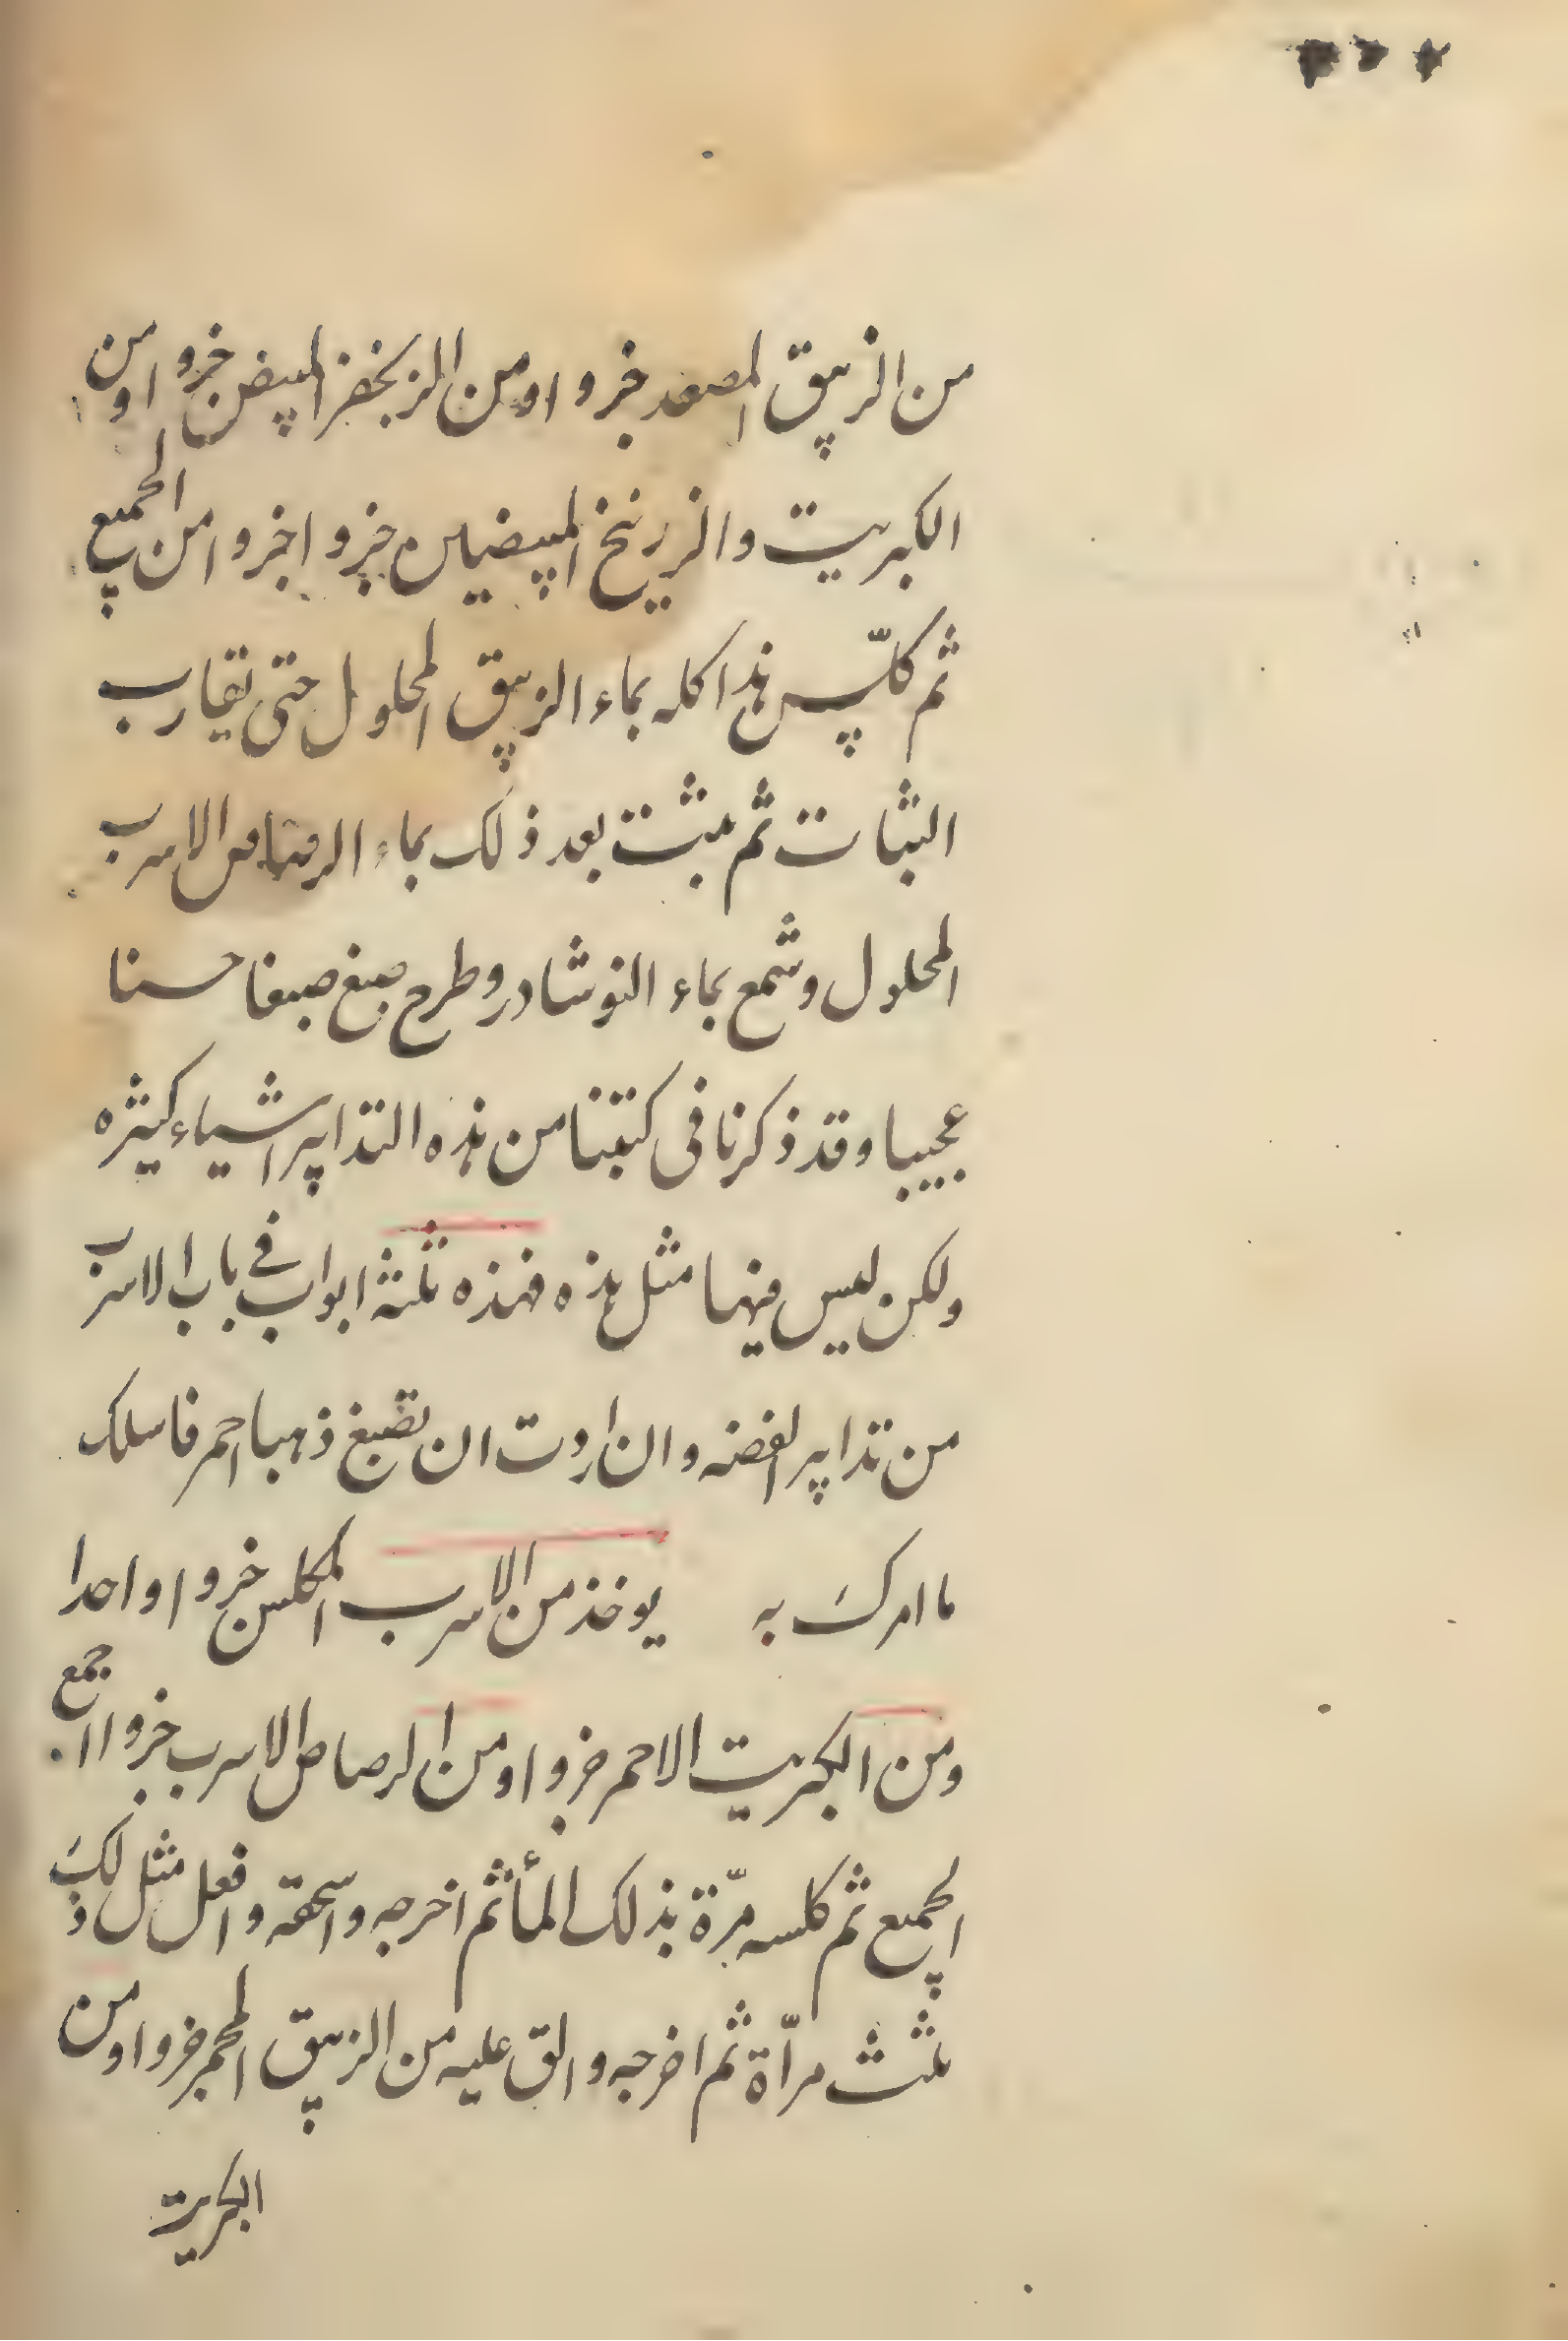 من الزيبق المصعد جزوا ومن الزنجفر المبيض جزوا ومن
الكبريت والزرنيخ المبيضين جزوا جزوا من الجميع
ثم كلّس هذا كله بماء الزيبق المحلول حتى تقارب
الثبات ثم يثبت بعد ذلك بماء الرصاص الاسرب
المحلول وشمع بماء النوشادر وطرح صبغ صبغا حسنا
عجيبا وقد ذكرنا في كتبنا من هذه التدابير اشياء كثيره
ولكن ليس فيها مثل هذه فهذه ثلثة ابواب في باب الاسرب
من تدابير الفضه وان اردت ان تصبغ ذهبا احمر فاسلك
ما امرك به يوخذ من الاسرب المكلس جزوا واحدا
ومن الكبريت الاحمر جزوا ومن الرصاص الاسرب جزوا اجمع
الجميع ثم كلسه مرّة بذلك المأ ثم اخرجه واسحقه وافعل مثل ذلك
ثلث مرّاة ثم اخرجه والق عليه من الزيبق المحمر جزوا ومن
الكبريت